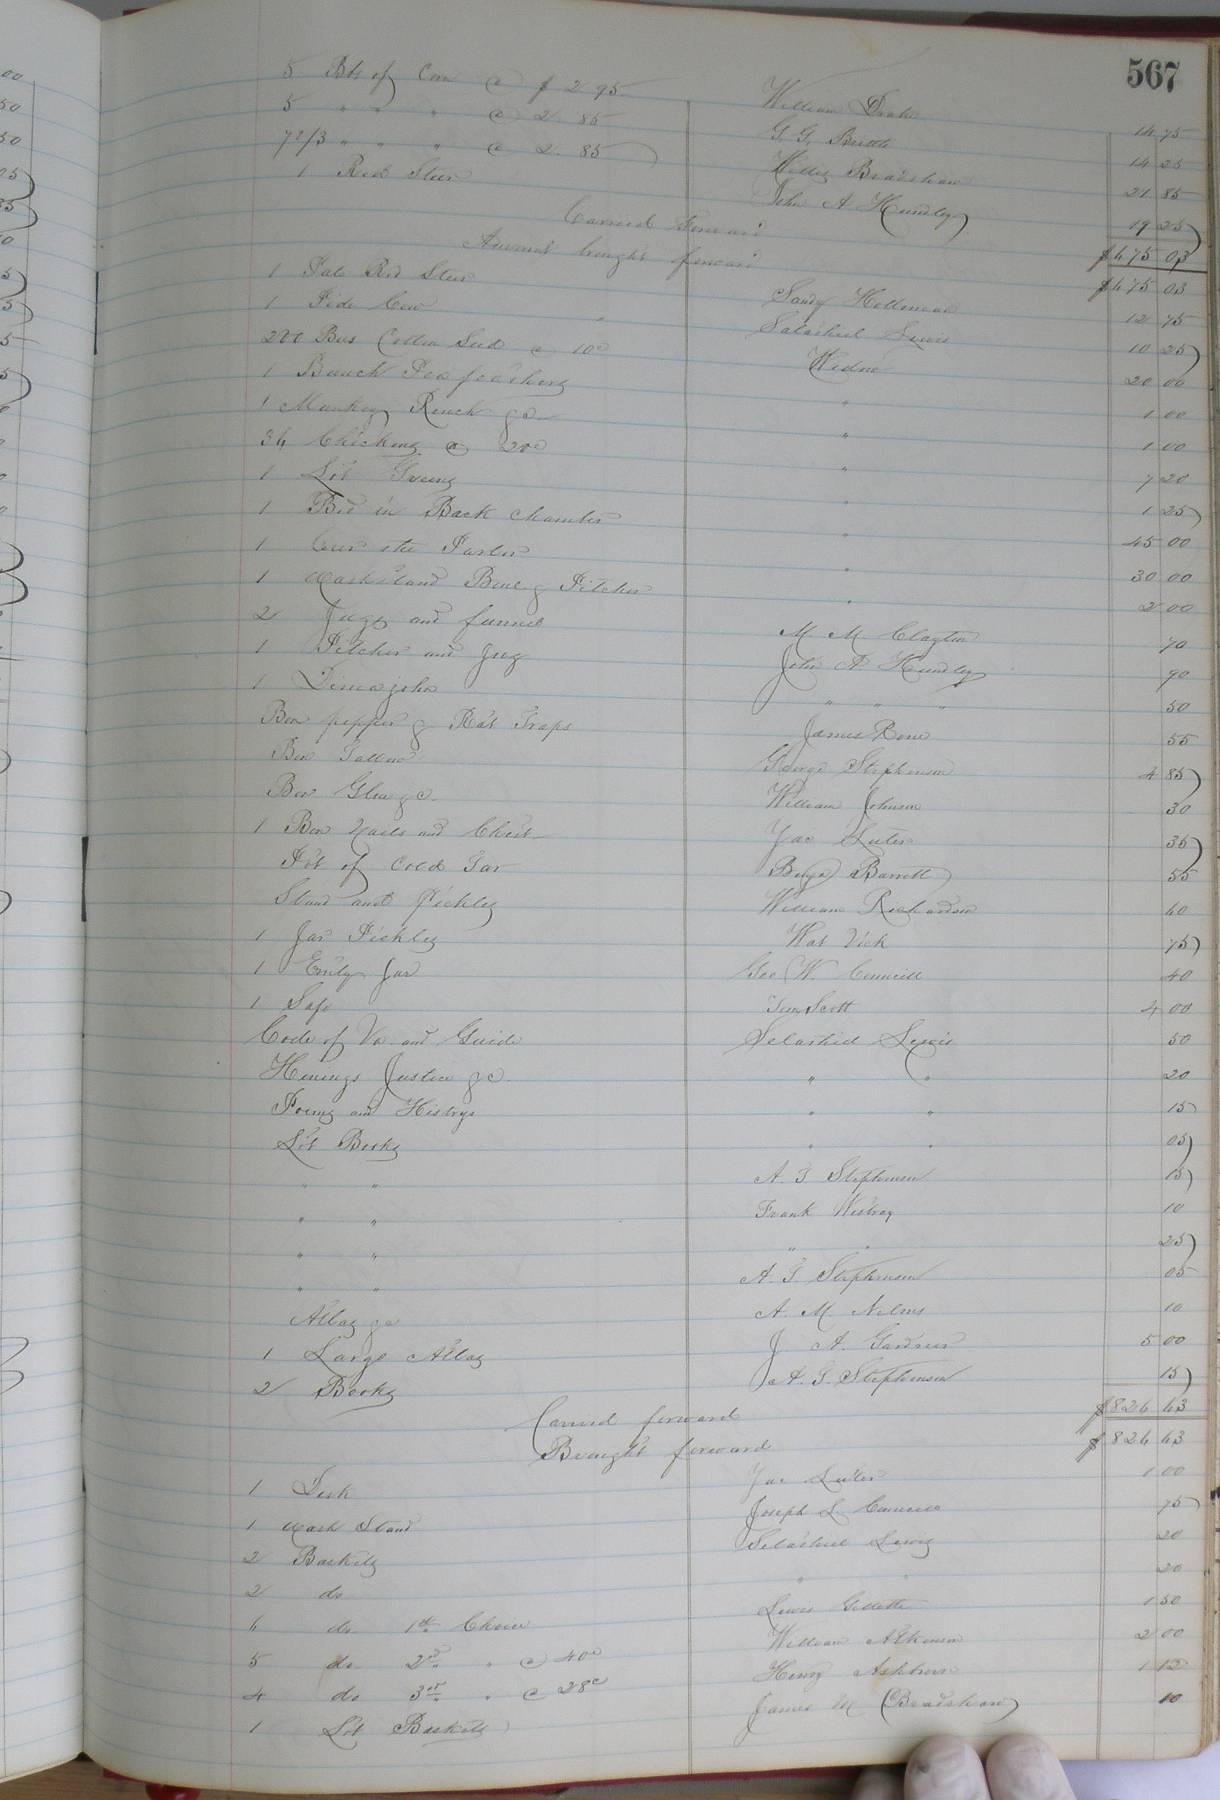 567
5 Bls of Corn @ $2 95 William Drake 14 75
5 " " " @ 2. 85 G. G. Britt 14 25
7 2/3 " " " @ 2. 85 Willis Bradshaw 21 85
1 Red Steer John A Hundley 19 25
Carried Forward $475 03
Amount brought forward $475 03
1 Pale Red Steer Sandy Holloman 12 75
1 Pide Cow " Salathiel Lewis 10 25
200 Bus Cotton Seed @ 10c Widow 20 00
1 Bunch Pea feathers " 1 00
1 Monkey Rench &c " 1 00
36 Chickens @ 20c " 7 20
1 Lot Greens " 1 25
1 Bed in Back Chamber " 45 00
1 Over the Parlor " 30 00
1 Washstand Bowl & Pitcher " 2 00
2 Jugs and funnel M M Clayton 70
1 Pitcher and Jug John A Hundley 90
1 Dimajohn " " " 50
Box pepper & Rat Traps James Rowe 55
Box Tallow George Stephenson 4 85
Box Glue &c. William Johnson 30
1 Box Nails and Chest Jac Luter 35
Pot of Cold Tar Benja Barrett 55
Stand and Pickles William Richardson 40
1 Jar Pickles Wat Vick 75
1 Emty Jar Geo W. Councill 40
1 Safe Tom Scott 4 00
Code of Va. and Guide Selathiel Lewis 50
Henings Justice &c. " " 20
Poems and Histrys " " 15
Lot Books " " 05
" " A. T Stephenson 15
" " Frank Westray 10
" " " " 25
" " A. T Stephenson 05
Atlas &c A. M. Nelms 10
1 Large Atlas J A. Gardner 5 00
2 Books A. T. Stephenson 15
Carried forward $826 43
Brought forward $826 43
1 Desk Jac Luter 1 00
1 Wash Stand Joseph L. Councill 75
2 Baskets Selathiel Lewis 20
2 do " " 20
6 do 1st Choice Lewis Gillette 1 50
5 do 2d " @ 40c William Atkinson 2 00
4 do 3rd " @ 28c Henry Ashburn 1 12
1 Lot Baskets James M Bradshaw 10